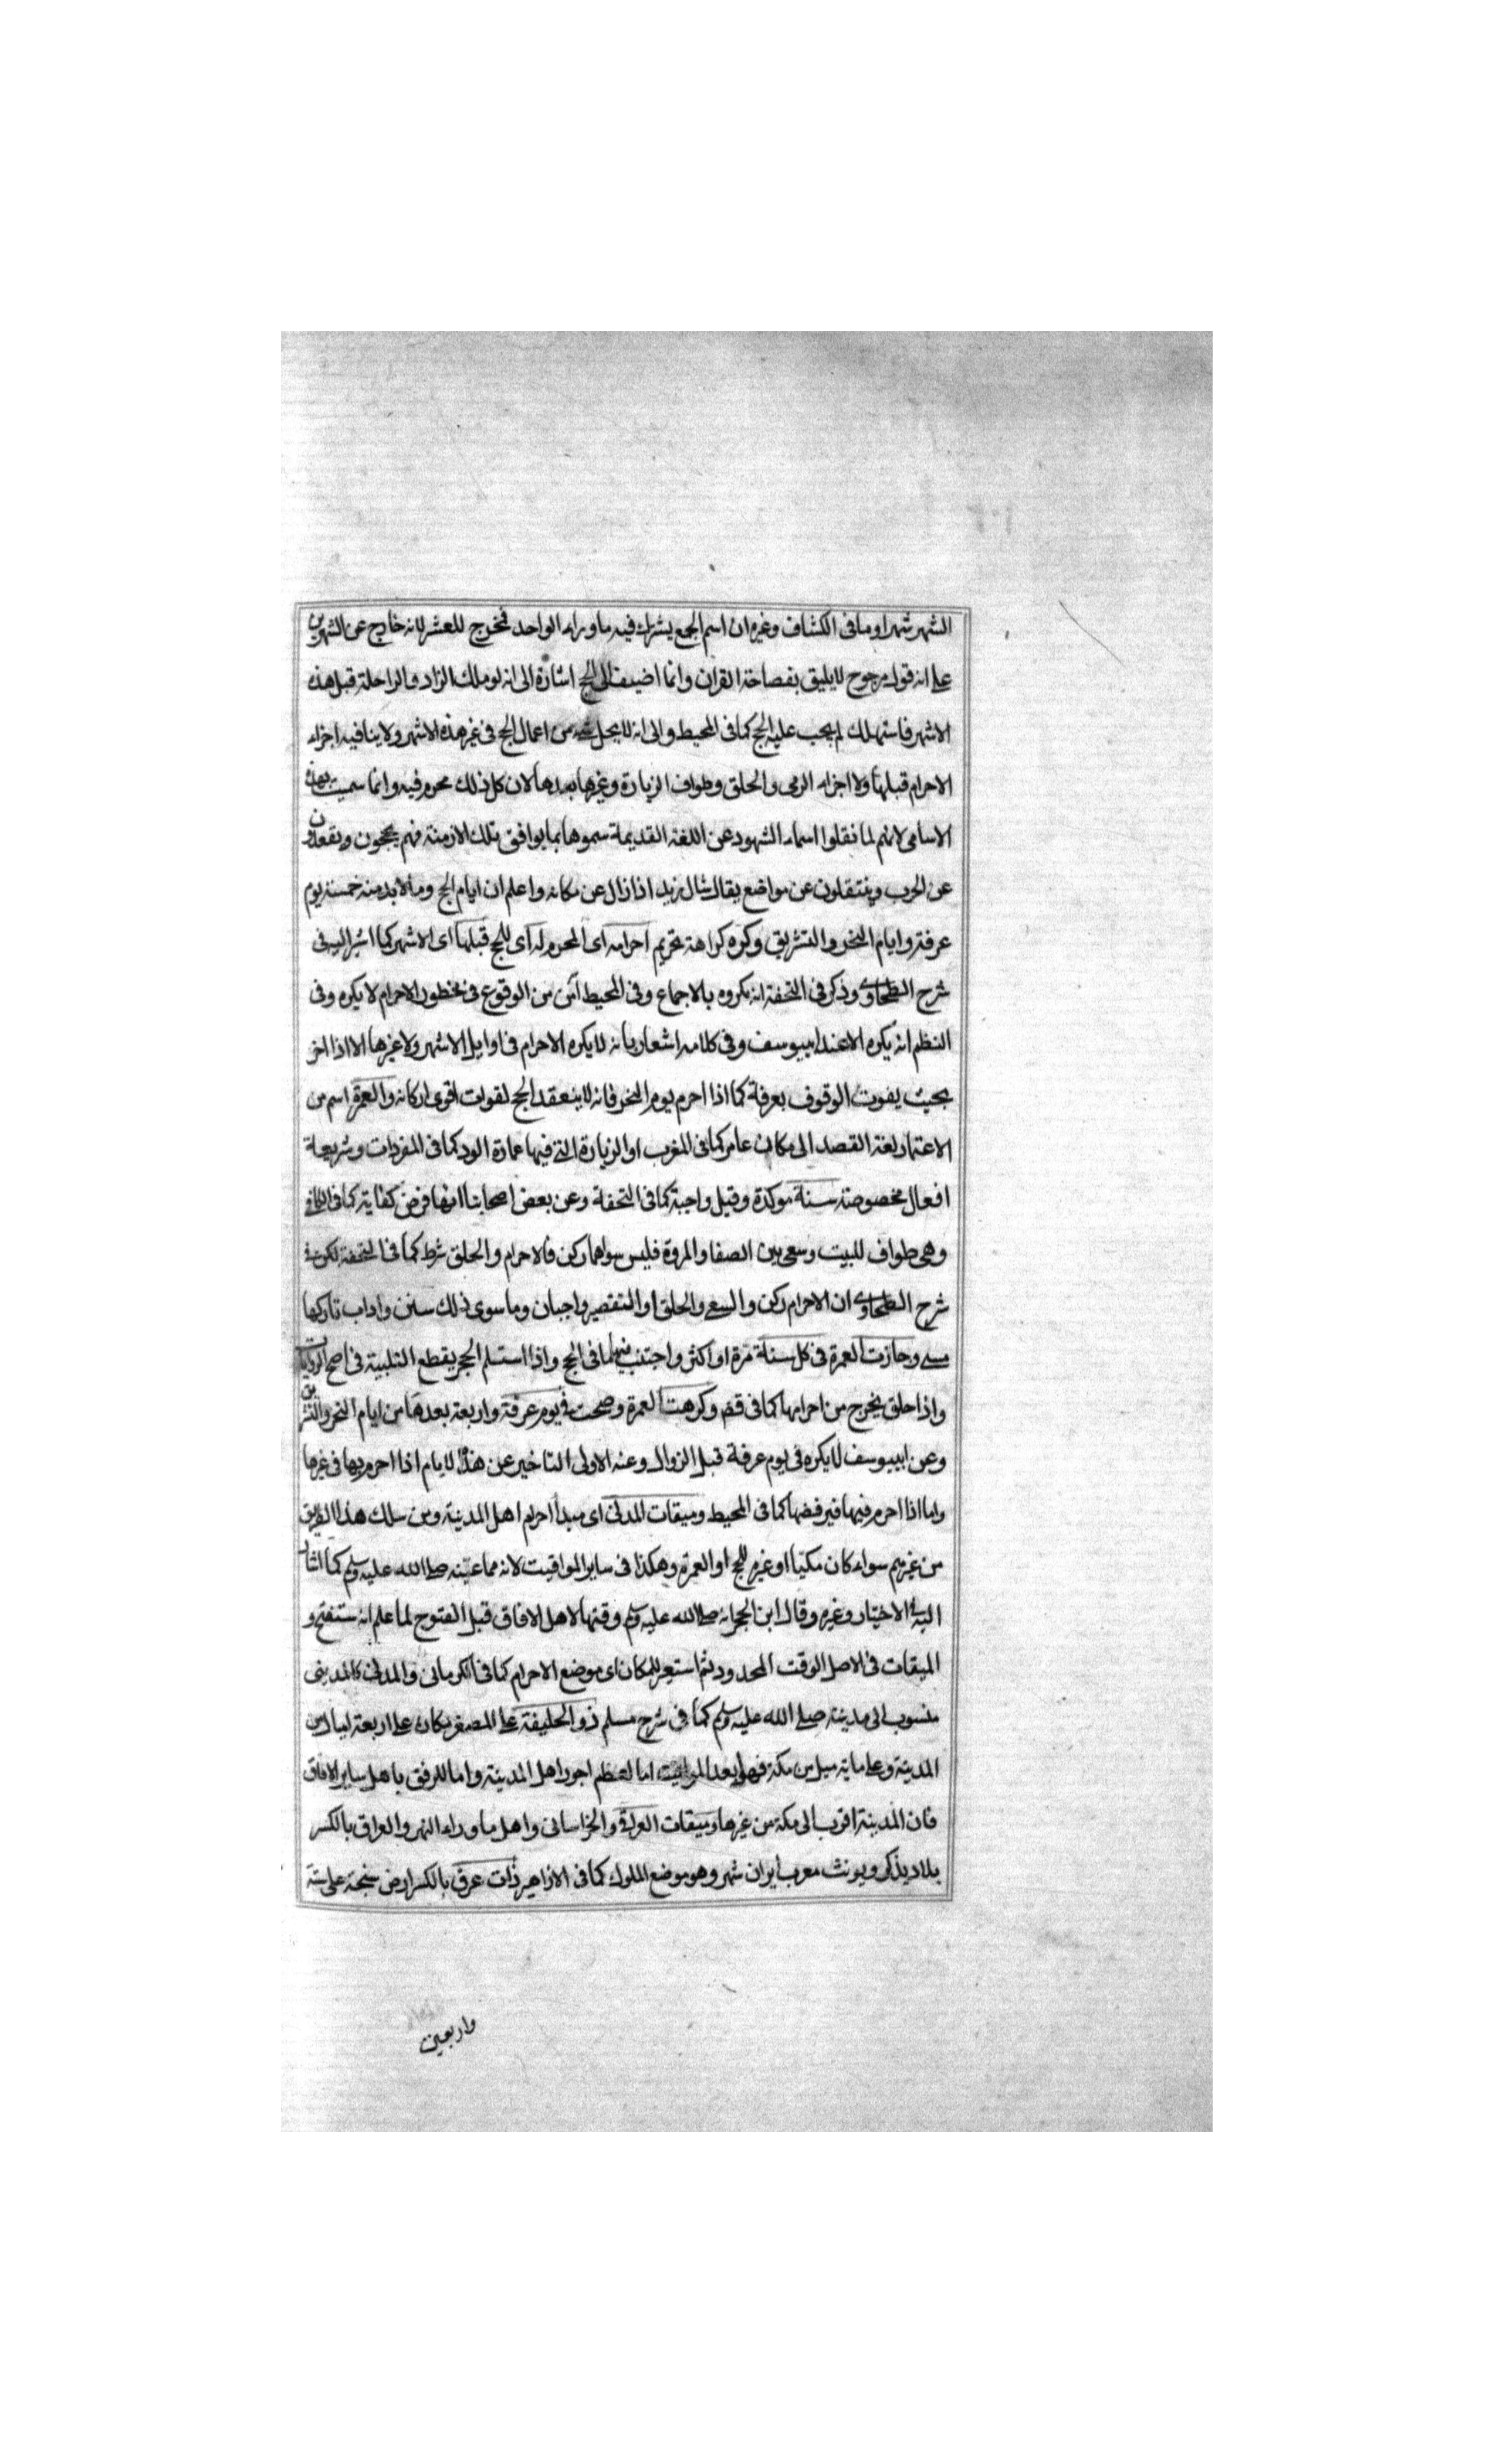 الشهر شهر او ما فى الكشاف وغيره ان اسم الجمع يشترك فيه ما وراء الواحد فمخرج للعشر لانه خارج عن الشهرين
على انه قول مرجوح لا يليق بفصاحة القران وانما اضيف الى الحج اشارة الى انه لو ملك الزاد والراحلة قبل هذه
الاشهر فاستهلك لم يجب عليه الحج كما فى المحيط والى انه لا يحل شئ من اعمال الحج فى غير هذه الاشهر ولا ينافيه اجزاء
الاحرام قبلها ولا اجزاء الرمى والحلق وطواف الزيارة وغيرها بعدها لان كل ذلك محرم فيه وانما سميت بهذه
الاسامى لانهم لما نقلوا اسماء الشهود عن اللغة القديمة سموها بما يوافق تلك الازمنة فهم يحجون ويقعدون
عن الحرب وينتقلون عن مواضع يقال شال زيد اذا زال عن مكانه واعلم ان ايام الحج وما لا بد منه خمسة يوم
عرفة وايام النحر والتشريق وكره كراهة تحريم احرامه اى المحرم له اى للحج قبلها اى الاشهر كما اشير اليه فى
شرح الطحاوى وذكر فى التحفة انه مكروه بالاجماع وفى المحيط امن من الوقوع فى محظور الاحرام لا يكره وفى
النظم انه يكره الا عند ابيوسف وفى كلامه اشعار بانه لا يكره الاحرام فى اوايل الاشهر ولا غيرها الا اذا اخر
بحيث يفوت الوقوف بعرفة كما اذا احرم يوم النحر فانه لا ينعقد الحج لفوات اقوى اركانه والعمرة اسم من
الاعتمار لغة القصد الى مكان عامر كما فى المغرب او الزيارة التى فيها عمارة الود كما فى المفردات وشريعة
افعال مخصوصة سنة موكدة وقيل واجبة كما فى التحفة وعن بعض اصحابنا انها فرض كفاية كما فى الكافى
وهى طواف للبيت وسعى بين الصفا والمروة فليس سواهما ركن فالاحرام والحلق شرط كما فى التحفة لكن فى
شرح الطحاوى ان الاحرام ركن والسعى والحلق او التقصير واجبان وما سوى ذلك سنن واداب تاركها
مسئ وجازت العمرة فى كل سنة مرة او اكثر واجتنب فيها ما فى الحج واذا استلم الحجر يقطع التلبية فى اصح الروايات
واذا حلق يخرج من احرامها كما فى قض وكرهت العمرة وصحت فى يوم عرفة واربعة بعدها من ايام النحر والتشريق
وعن ابيوسف لا يكره فى يوم عرفة قبل الزوال وعنه الاولى التاخير عن هذه الايام اذا احرم بها فى غيرها
واما اذا احرم فيها فيرفضها كما فى المحيط وميقات المدنى اى مبدأ احرام اهل المدينة ومن سلك هذا الطريق
من غيرهم سواء كان مكيا او غيره للحج او العمرة وهكذا فى ساير المواقيت لانه مما عينه صلى الله عليه وسلم كما اشار
اليه فى الاختيار وغيره وقال ابن الحجر انه صلى الله عليه وسلم وقتها لاهل الافاق قبل الفتوح لما علم انه ستفتح و
الميقات فى الاصل الوقت المحدود ثم استعير للمكان اى موضع الاحرام كما فى الكرمانى والمدنى كالمدينى
منسوب الى مدينته صلى الله عليه وسلم كما فى شرح مسلم ذو الحليفة على المصغر مكان على اربعة اميال من
المدينة وعلى ماية ميل من مكة فهو ابعد المواقيت اما لعظم اجور اهل المدينة واما للرفق باهل ساير الافاق
فان المدينة اقرب الى مكة من غيرها وميقات العراقى والخراسانى واهل ما وراء النهر والعراق بالكسر
بلاد يذكر ويونث معرب ايران شهر وهو موضع الملوك كما فى الازاهير ذات عرق بالكسر ارض سنجة على ستة
واربعين